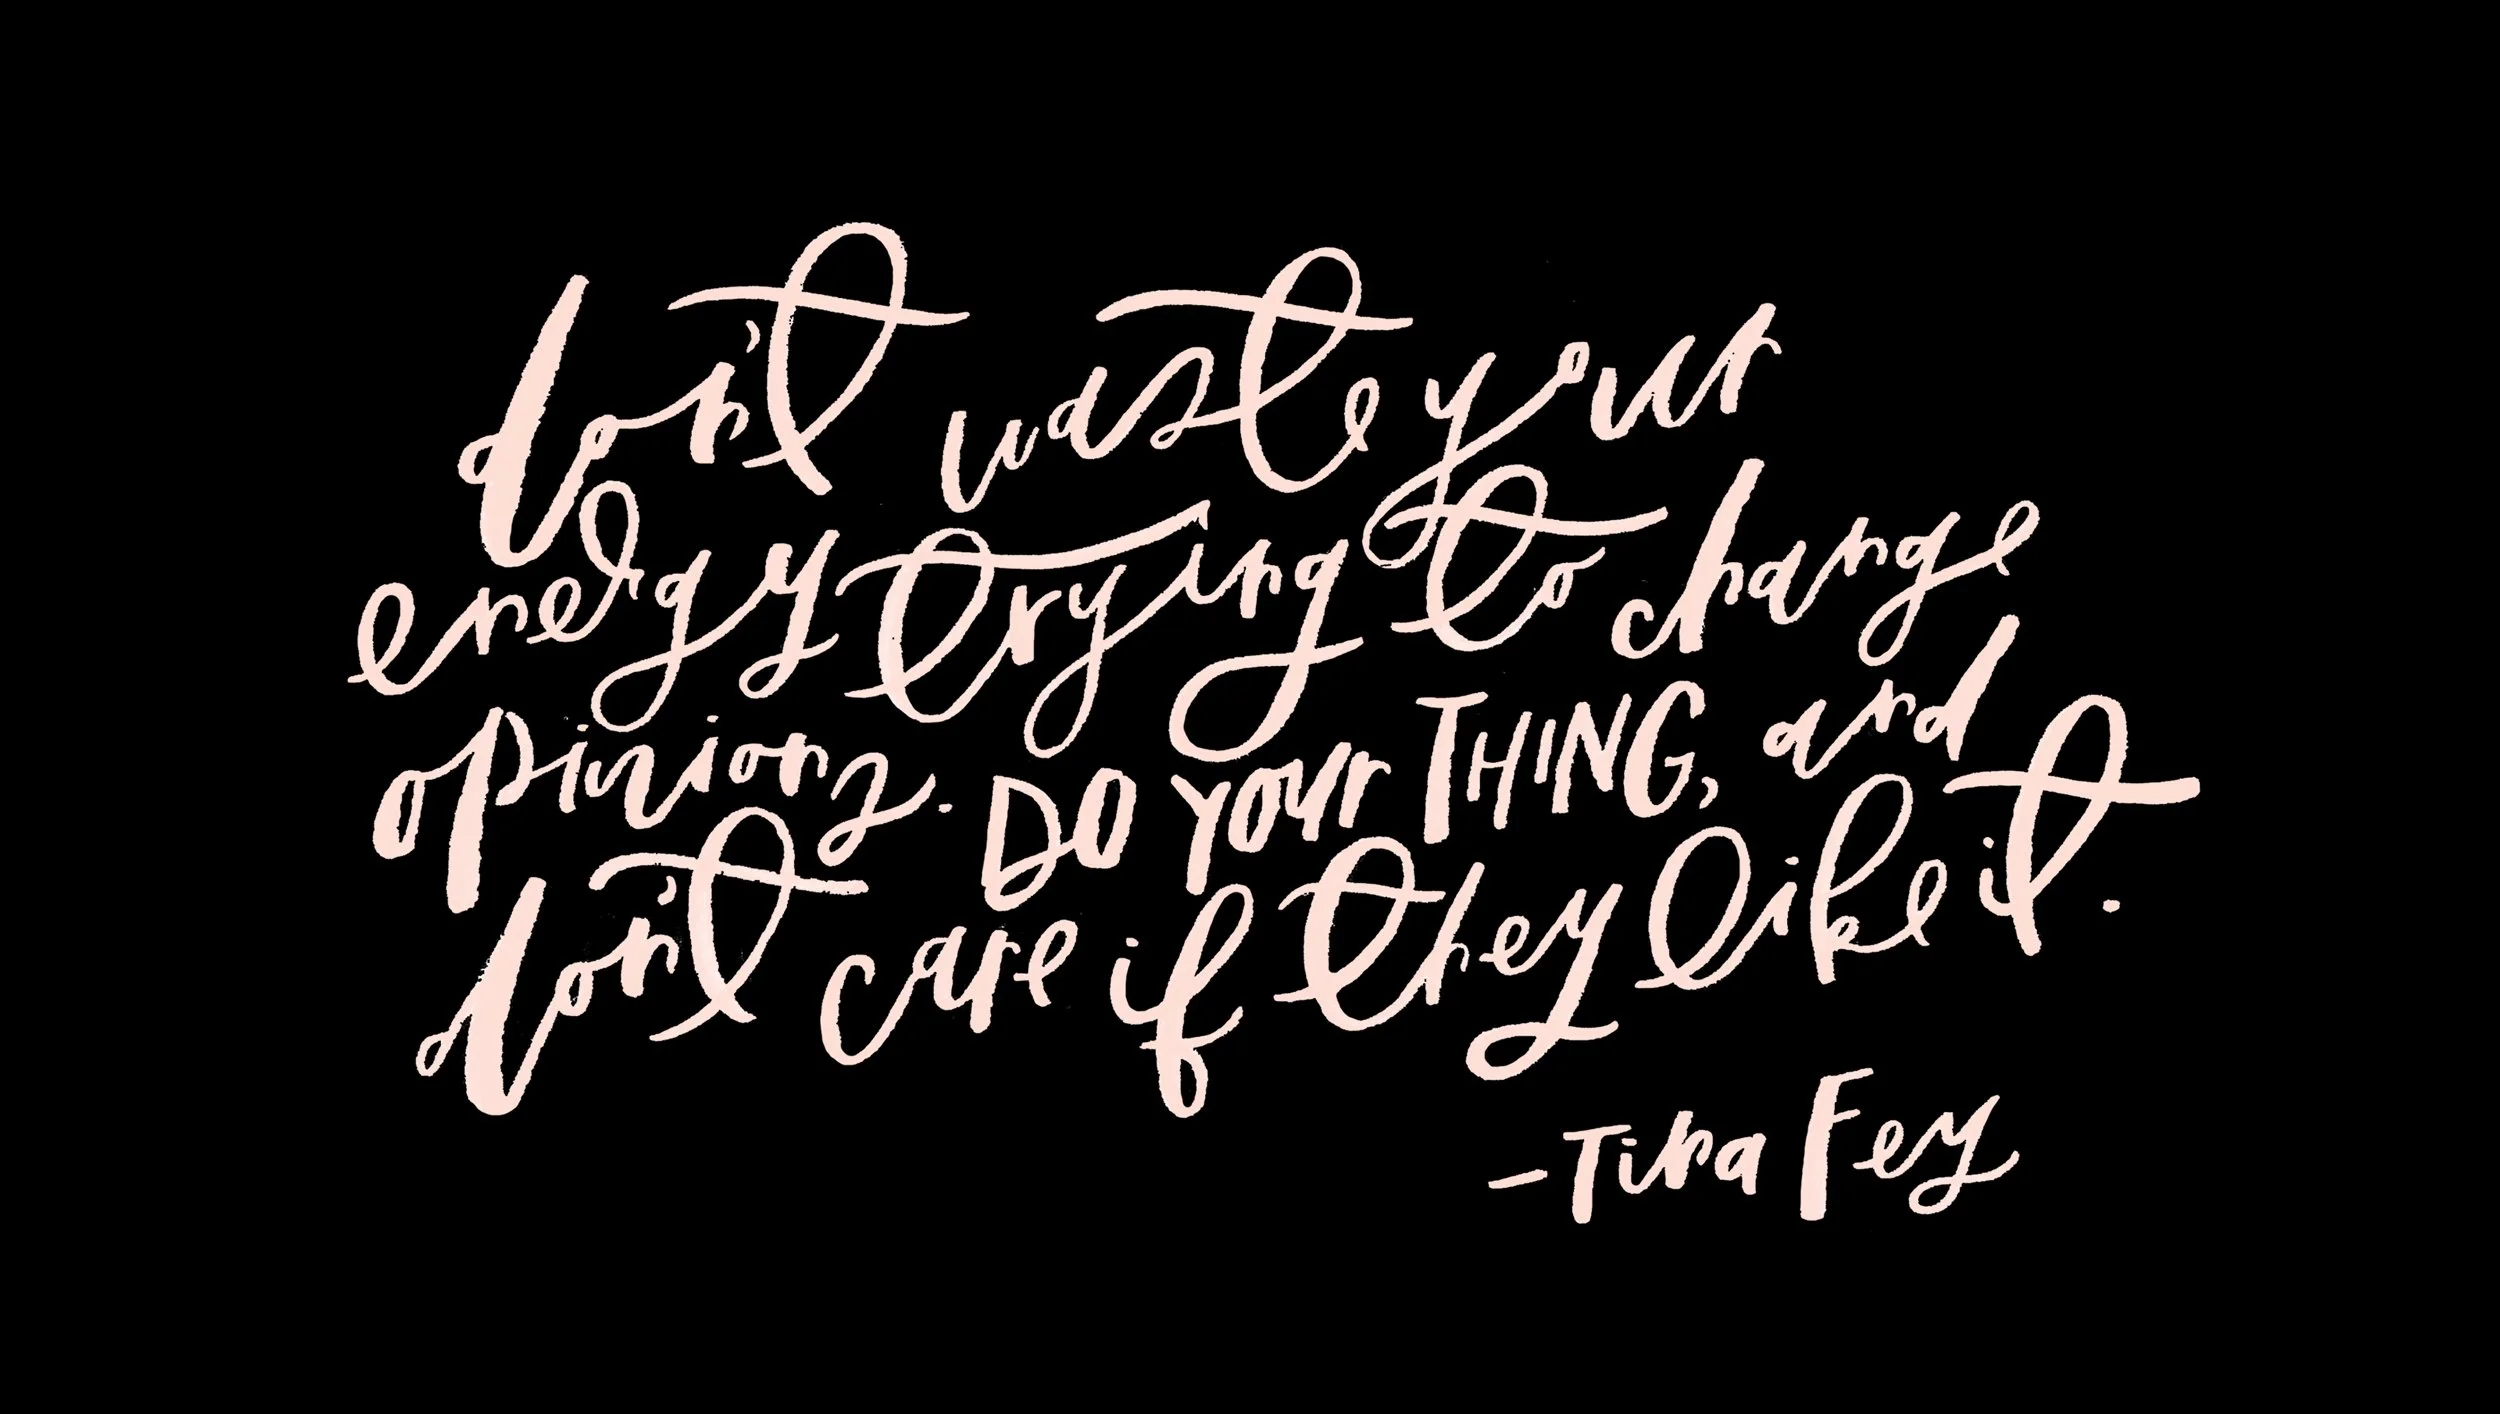 don't waste your
energy trying to change
opinions. DO YOUR THING, and
don't care if they like it.
-Tina Fey